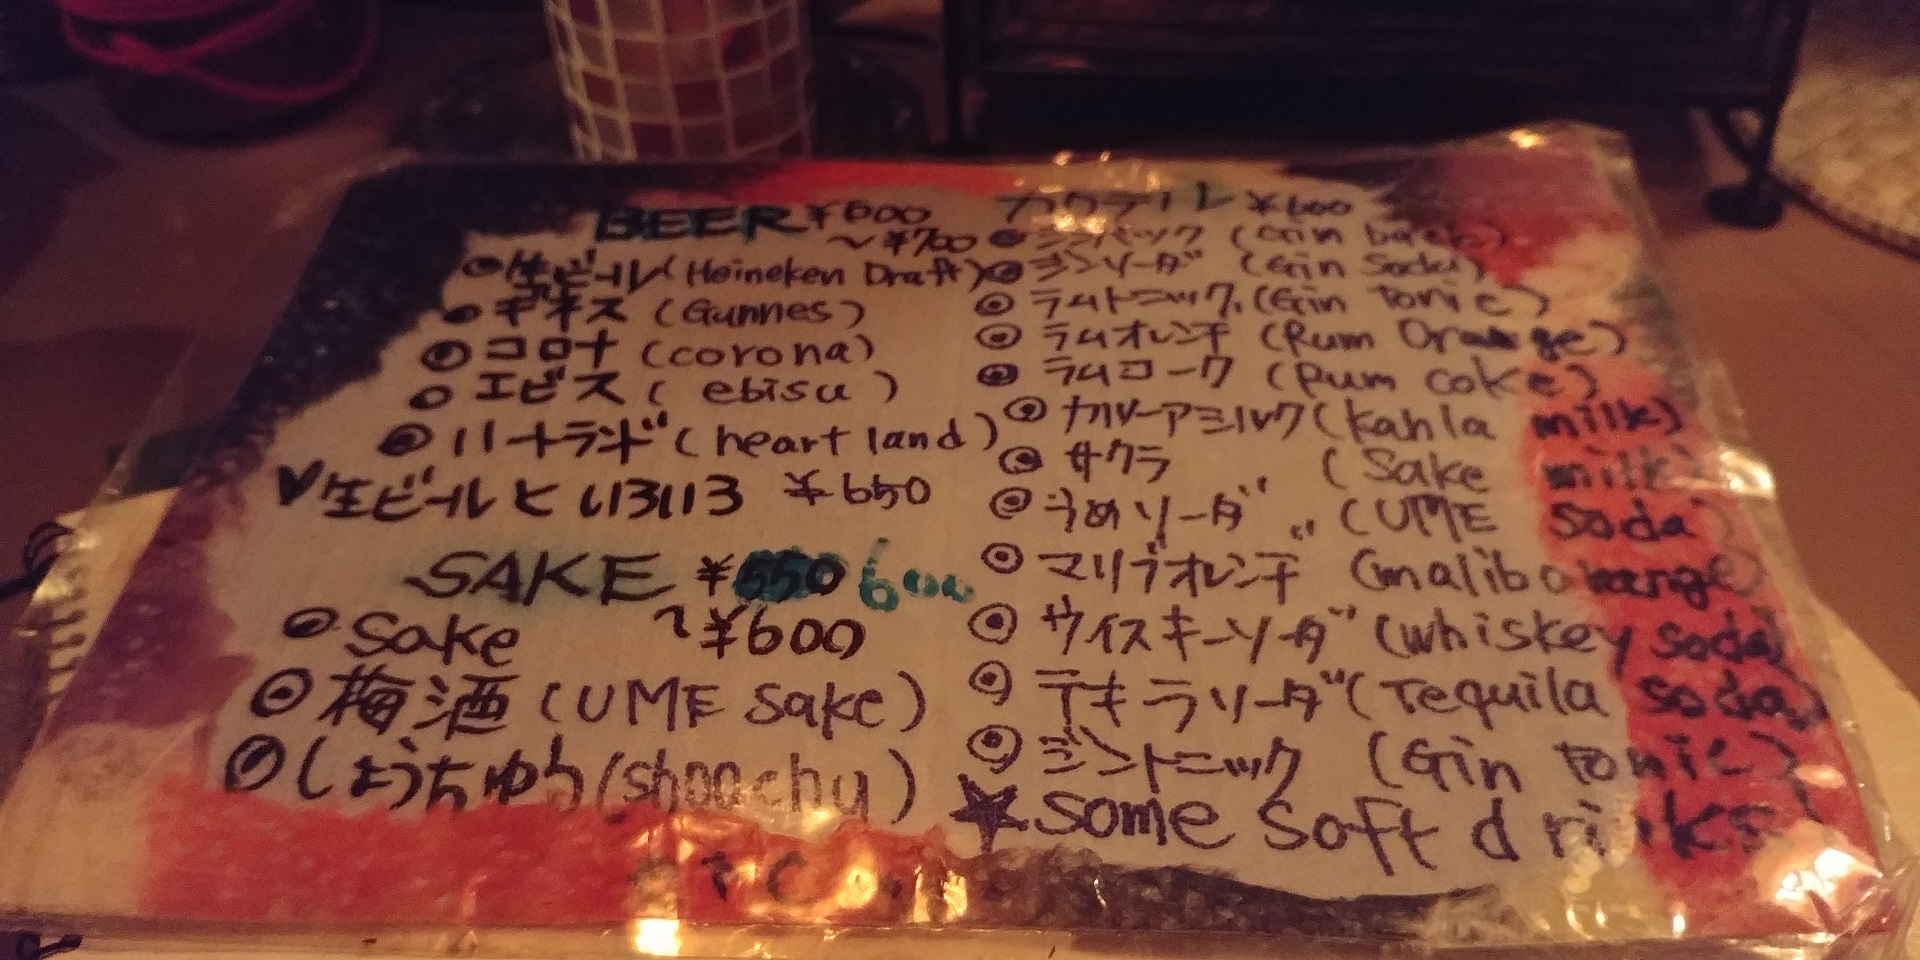 BEER ¥600
~¥700
生ビール (Heineken Draft)
ギネス (Gunnes)
コロナ (corona)
エビス (ebisu)
ハートランド (heart land)
♥生ビールといろいろ ¥650
SAKE ¥550 600
~¥600
Sake
梅酒 (UME Sake)
しょうちゅう (shoochu)
etc
カクテル ¥600
ジンバック (Gin back)
ジンソーダ (Gin Soda)
ラムトニック (Gin tonic)
ラムオレンヂ (Rum Orange)
ラムコーク (Rum coke)
カルーアミルク (kahla milk)
サクラ (Sake milk)
うめソーダ (UME soda)
マリブオレンヂ (malibo orange)
ウイスキーソーダ (whiskey soda)
テキラソーダ (Tequila soda)
ジントニック (Gin tonic)
★some soft drinks